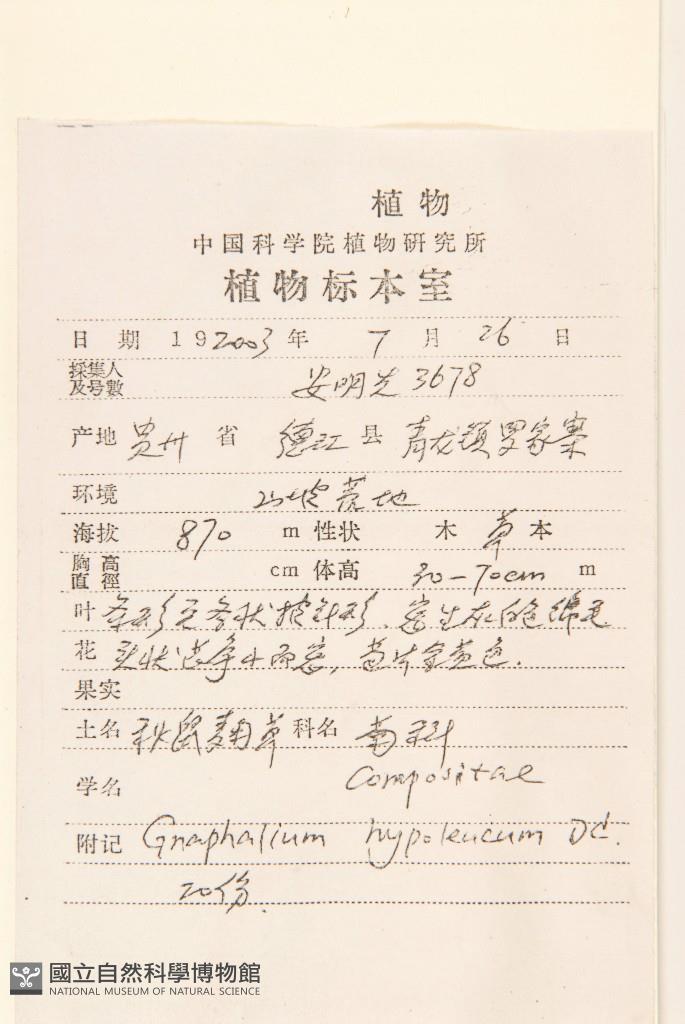 植物
中国科学院植物研究所
植物标本室
日期 192003年 7月 26日
採集人及号數 安明先 3678
产地 贵州 省 德江 县 青龙镇罗家寨
环境 山坡荒地
海拔 870 m 性状 木 草 本
胸高直徑 cm 体高 30-70cm m
叶 条形至条状披针形、密生灰白色绵毛
花 头状花序小而密,苞片金黄色.
果实
土名 秋鼠麴草 科名 菊科
学名 Compositae
附记 Gnaphalium hypoleucum DC.
20份.
國立自然科學博物館
NATIONAL MUSEUM OF NATURAL SCIENCE